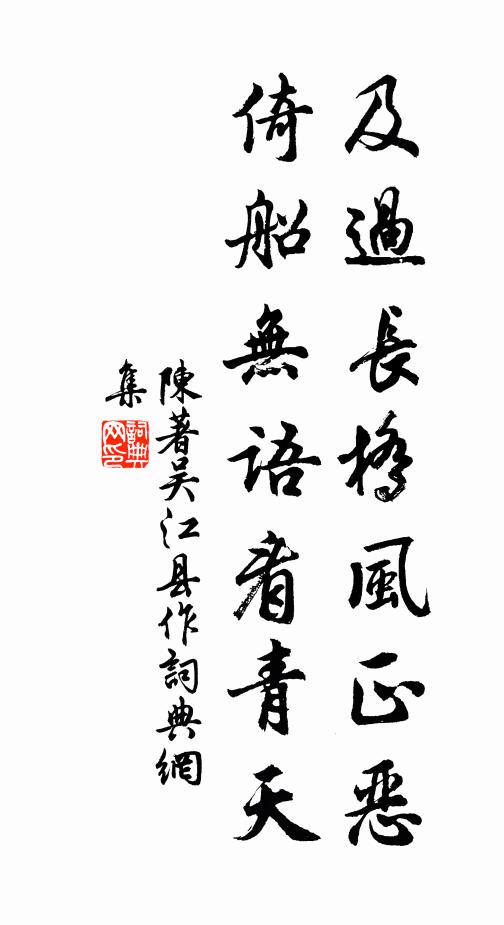 及過長橋風正惡
倚船無語看青天
陳著吴江县作詞典網
集
詞典网印